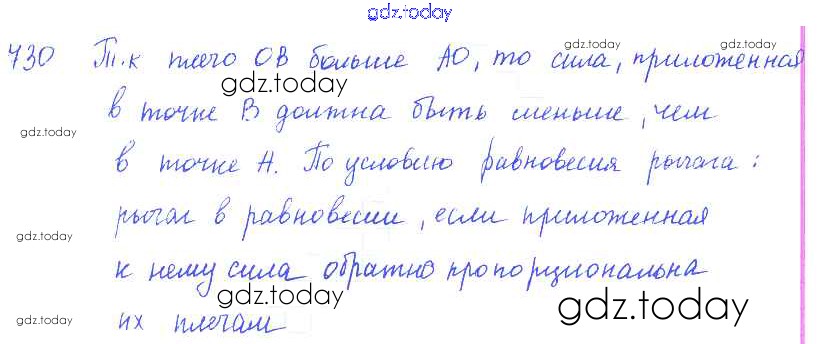 gdz.today
730 Т.к плечо ОВ больше АО, то сила, приложенная
gdz.today
в точке В должна быть меньше, чем
gdz.today
в точке А. По условию равновесия рычага:
рычаг в равновесии, если приложенная
gdz.today
к нему сила обратно пропорциональна
gdz.today gdz.today
gdz.today их плечам